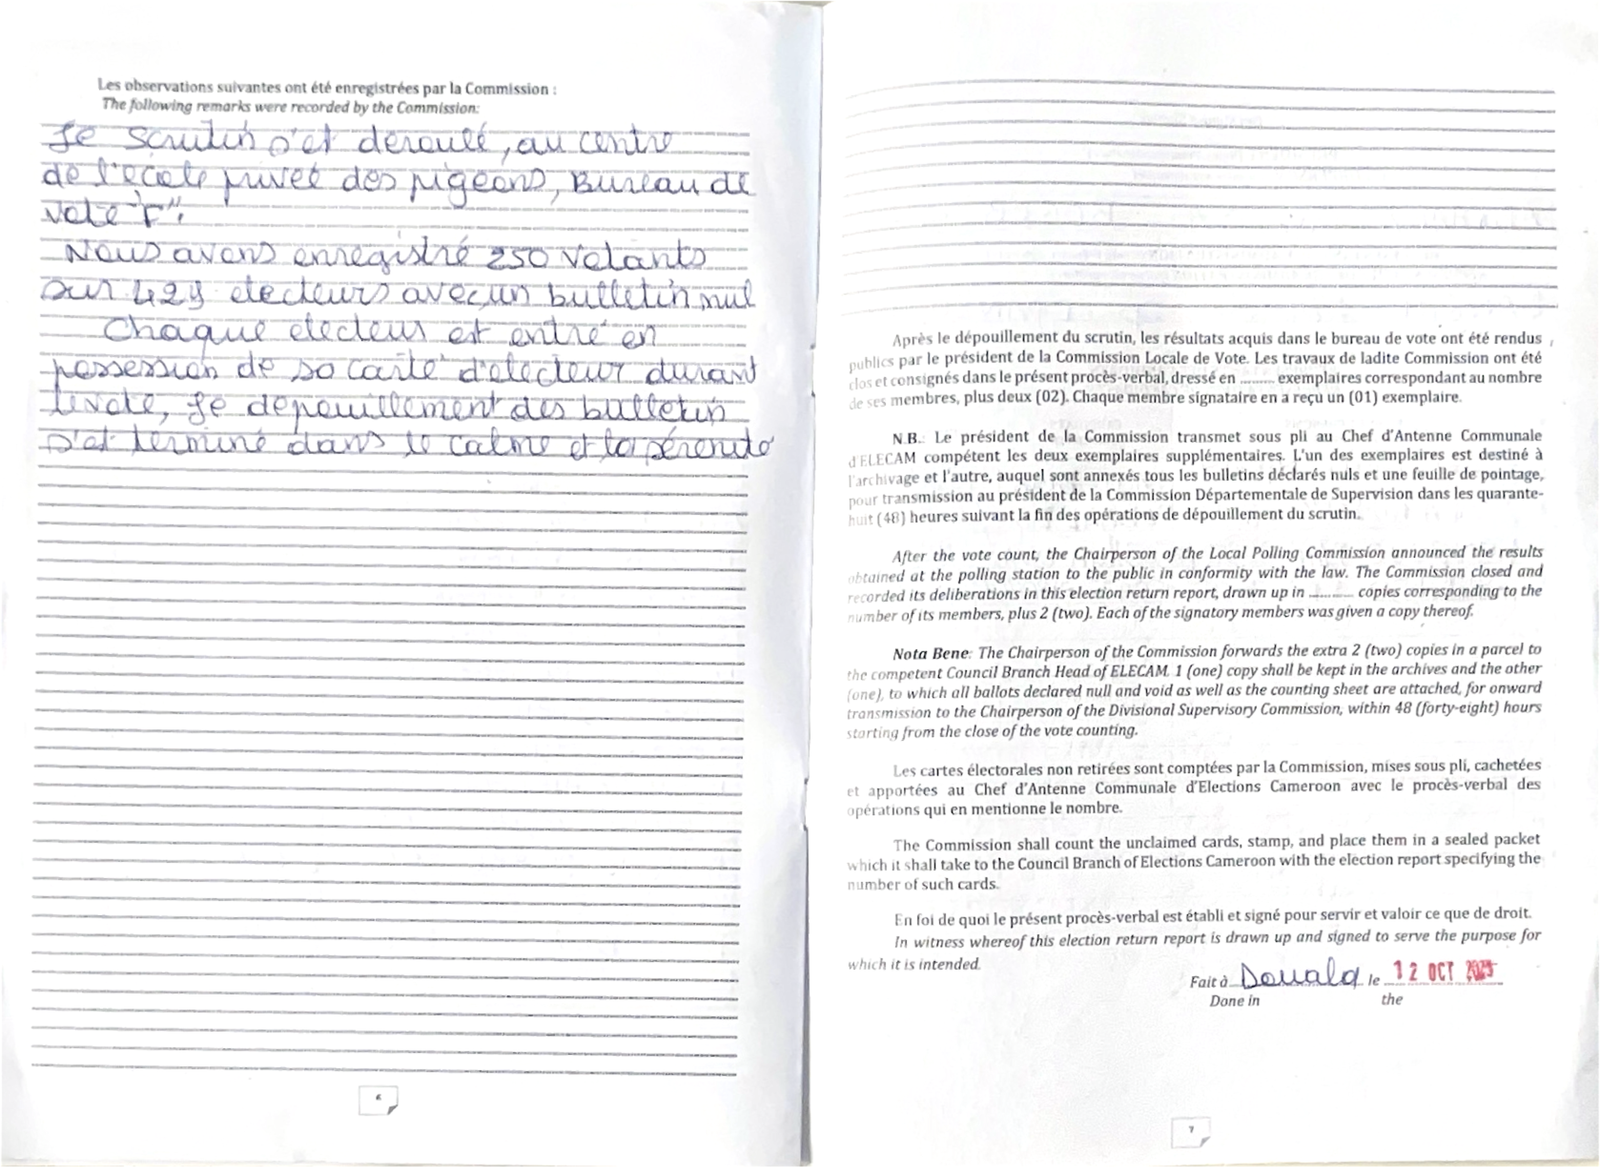 Les observations suivantes ont été enregistrées par la Commission :
The following remarks were recorded by the Commission:
Le scrutin s'et deroulé, au centre
de l'ecole privée des pigeons, Bureau de
vote "F".
Nous avons enregistré 250 votants
sur 429 electeurs avec un bulletin nul
Chaque electeur est entré en
possession de sa carte d'electeur durant
le vote, le depouillement des bulletin
s'et terminé dans le calme et la sérenité
6
Après le dépouillement du scrutin, les résultats acquis dans le bureau de vote ont été rendus
publics par le président de la Commission Locale de Vote. Les travaux de ladite Commission ont été
clos et consignés dans le présent procès-verbal, dressé en ......... exemplaires correspondant au nombre
de ses membres, plus deux (02). Chaque membre signataire en a reçu un (01) exemplaire.
N.B. Le président de la Commission transmet sous pli au Chef d'Antenne Communale
d'ELECAM compétent les deux exemplaires supplémentaires. L'un des exemplaires est destiné à
l'archivage et l'autre, auquel sont annexés tous les bulletins déclarés nuls et une feuille de pointage,
pour transmission au président de la Commission Départementale de Supervision dans les quarante-
huit (48) heures suivant la fin des opérations de dépouillement du scrutin.
After the vote count, the Chairperson of the Local Polling Commission announced the results
obtained at the polling station to the public in conformity with the law. The Commission closed and
recorded its deliberations in this election return report, drawn up in ............ copies corresponding to the
number of its members, plus 2 (two). Each of the signatory members was given a copy thereof.
Nota Bene: The Chairperson of the Commission forwards the extra 2 (two) copies in a parcel to
the competent Council Branch Head of ELECAM. 1 (one) copy shall be kept in the archives and the other
(one), to which all ballots declared null and void as well as the counting sheet are attached, for onward
transmission to the Chairperson of the Divisional Supervisory Commission, within 48 (forty-eight) hours
starting from the close of the vote counting.
Les cartes électorales non retirées sont comptées par la Commission, mises sous pli, cachetées
et apportées au Chef d'Antenne Communale d'Elections Cameroon avec le procès-verbal des
opérations qui en mentionne le nombre.
The Commission shall count the unclaimed cards, stamp, and place them in a sealed packet
which it shall take to the Council Branch of Elections Cameroon with the election report specifying the
number of such cards.
En foi de quoi le présent procès-verbal est établi et signé pour servir et valoir ce que de droit.
In witness whereof this election return report is drawn up and signed to serve the purpose for
which it is intended.
Fait à Douala le 12 OCT 2025
Done in the
7